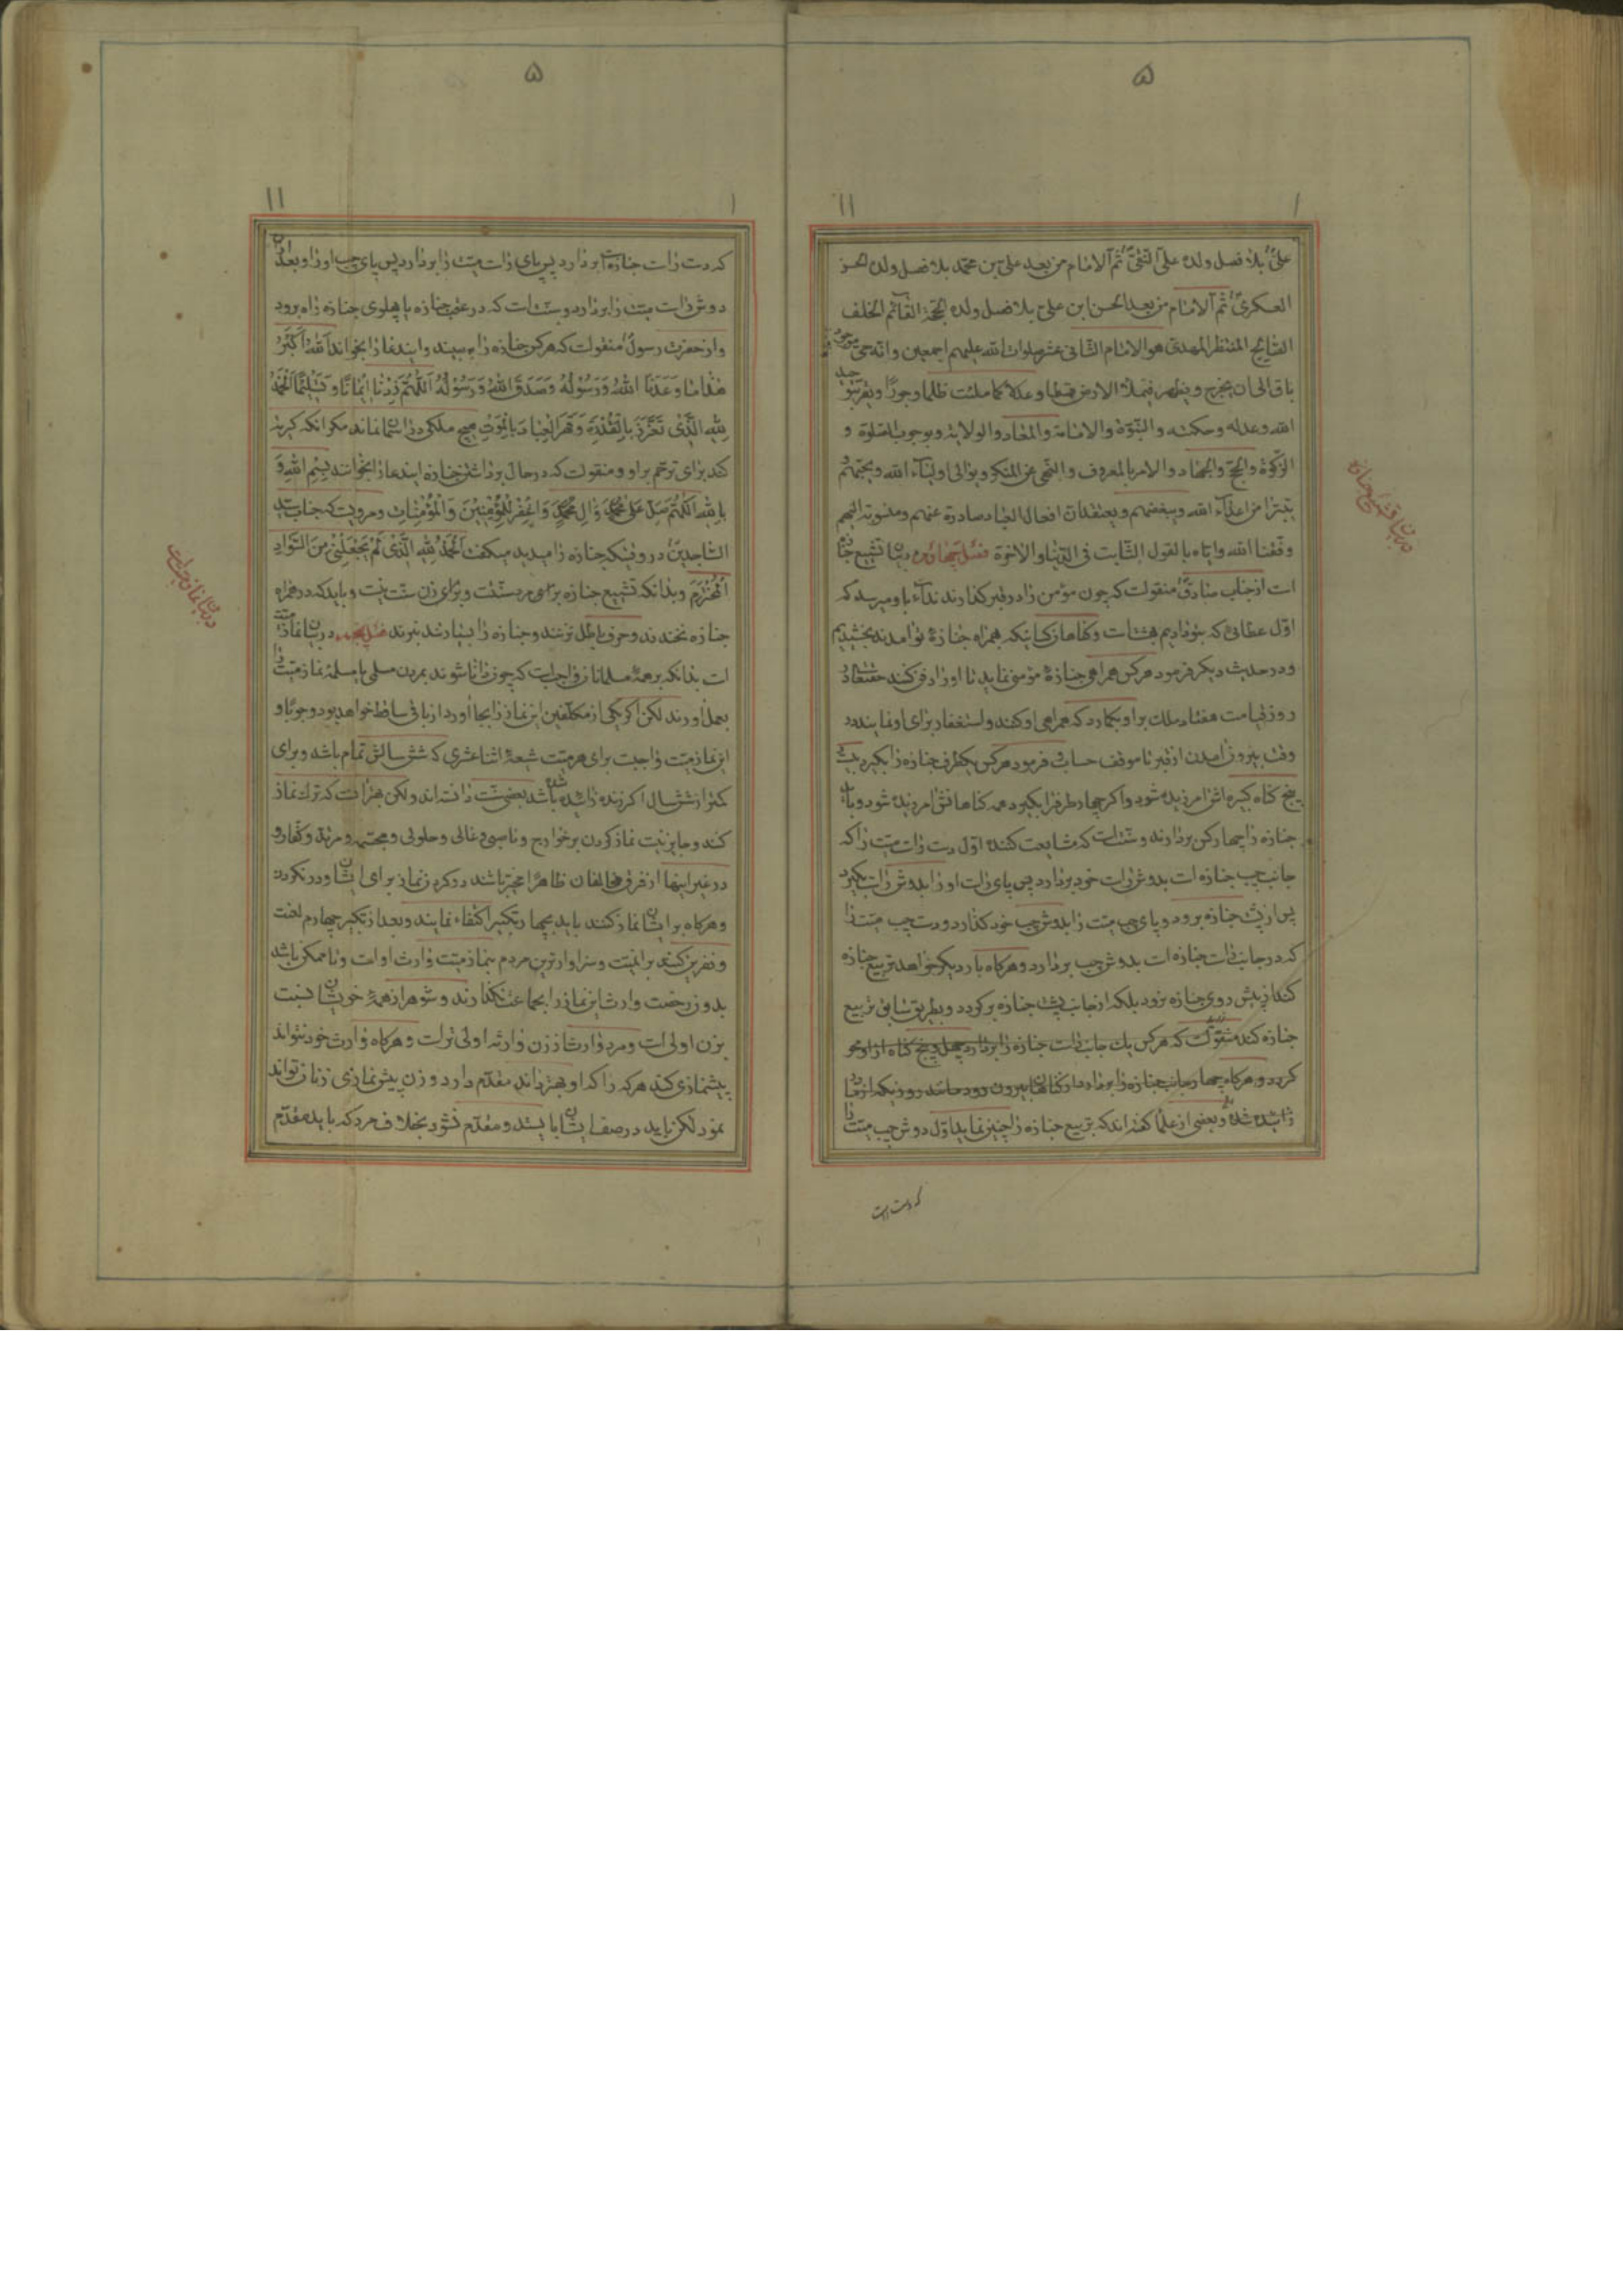 ۵
۱۱
۱
علیّ بلا فصل ولده علیّ النقیّ ثم الامام من بعد علی بن محمد بلا فصل ولده الحسن
العسکریّ ثم الامام من بعد الحسن ابن علی بلا فصل ولده الحجّة القائم الخلف
الصالح المنتظر المهدی هو الامام الثانی عشر صلوات الله علیهم اجمعین وانه حیّ موجود
باق الی ان یخرج ویظهر فیملأ الارض قسطا وعدلا کما ملئت ظلما وجورًا ویقر بتوحید
الله وعدله وحکمته والنبوّة والامامة والمعاد والولایة وبوجوب الصلوة و
الزکوة والحجّ والجهاد والامر بالمعروف والنهی عن المنکر ویوالی اولیاء الله ویحبّهم و
یتبرّا من اعداء الله ویبغضهم ویعتقد ان افعال العباد صادرة عنهم ومنسوبة الیهم
وفّقنا الله وایّاه بالقول الثابت فی الدّنیا والاخرة فصل چهاردهم در بیان تشییع جنازه
است از جناب صادقؑ منقولست که چون مؤمن را در قبر گذارند نداء باو میرسد که
اوّل عطائی که بتو دادیم بهشت است وگناهان کسانیکه همراه جنازهٔ تو امدند بخشیدیم
ودر حدیث دیگر فرمود هرکس همراهی جنازهٔ مؤمن نماید تا او را دفن کند حقتعالی در
روز قیامت هفتاد ملک بر او بگمارد که همراهی او کنند واستغفار برای او نمایند در
وقت بیرون امدن از قبر تا موقف حساب وفرمود هرکس یکطرف جنازه را بگیرد بیست و
پنج گناه کبیره اش امرزیده شود واگر چهار طرف را بگیرد همه گناهانش امرزیده شود وباید
جنازه را چهار کس بردارند وسنت است که مشایعت کننده اوّل دست راست میّت را که
جانب چپ جنازه است بدوش راست خود بردارد پس پای راست او را بدوش راست بگیرد
پس از پشت جنازه برود وپای چپ میّت را بدوش چپ خود گذارد ودست چپ میّت را
که در جانب راست جنازه است بدوش چپ بردارد وهرگاه بار دیگر خواهد تربیع جنازه
کند از پیش روی جنازه نرود بلکه از جانب پشت جنازه برگردد وبطریق سابق تربیع
جنازه کند منقولست که هرکس یک جانب راست جنازه را بردارد چهل وپنج گناه از او محو
گردد وهرگاه چهار جانب جنازه را بردارد از گناهان بیرون رود مانند روزیکه از مادر
زائیده شده وبعضی از علما گفته اند که تربیع جنازه را چنین نماید اوّل دوش چپ میّت را
که دست راست
در بیان تشییع جنازه
۵
۱۱
۱
که دست راست جنازه است بردارد پس پای راست میّت را بردارد پس پای چپ او را وبعد از ان
دوش راست میّت را بردارد وسنت است که در عقب جنازه یا پهلوی جنازه راه برود
واز حضرت رسولؐ منقولست که هرکس جنازه را به بیند واین دعا را بخواند اَللهُ اَکْبَرُ
هٰذا ما وَعَدَنَا اللهُ وَرَسُوْلُهُ وَصَدَقَ اللهُ وَرَسُوْلُهُ اَللّٰهُمَّ زِدْنا اِیْمانًا وَتَسْلِیْمًا اَلْحَمْدُ
لِلّٰهِ الَّذِیْ تَعَزَّزَ بِالْقُدْرَةِ وَقَهَرَ الْعِبادَ بِالْمَوْتِ هیچ ملکی در اسمان نماند مگر انکه گریه
کند برای ترحّم بر او ومنقولست که در حال برداشتن جنازه این دعا را بخوانند بِسْمِ اللهِ وَ
بِاللهِ اَللّٰهُمَّ صَلِّ عَلیٰ مُحَمَّدٍ وَاٰلِ مُحَمَّدٍ وَاغْفِرْ لِلْمُؤْمِنِیْنَ وَالْمُؤْمِناتِ ومرویست که جناب سیّد
الساجدینؑ در وقتیکه جنازه را میدید میگفت اَلْحَمْدُ لِلّٰهِ الَّذِیْ لَمْ یَجْعَلْنِیْ مِنَ السَّوادِ
الْمُخْتَرَمِ وبدانکه تشییع جنازه برای مرد سنّت است وبرای زن سنّت نیست وباید که در همراه
جنازه نخندند وحرف باطل نزنند وجنازه را بسیار تند نبرند فصل پانزدهم در بیان نماز میّت
است بدانکه بر همهٔ مسلمانان واجب است که چون دانا شوند بمردن مسلمی یا مسلمهٔ نماز میّت را
بعمل اورند لکن اگر یکی از مکلّفین این نماز را بجا اورد از باقی ساقط خواهد بود وجوبًا و
این نماز میّت واجب است برای هر میّت شیعهٔ اثنا عشری که شش سالش تمام باشد وبرای
کمتر از شش سال اگر زنده زائیده شده باشد بعضی سنّت دانسته اند ولکن بهتر انست که ترک نماز
کند وجایز نیست نماز کردن بر خوارج وناصبی وغالی وحلولی ومجسّمه ومرتد وکفّار و
در غیر اینها از فرق مخالفان ظاهرًا مخیّر باشند در کردن نماز برای ایشان ودر نکردن
وهرگاه بر ایشان نماز کنند باید بچهار تکبیر اکتفاء نمایند وبعد از تکبیر چهارم لعنت
ونفرین کنند بر انمیّت وسزاوارترین مردم بنماز میّت وارث او است وتا ممکن باشد
بدون رخصت وارث این نماز را بجماعت نگذارند وشوهر از همهٔ خویشان نسبت
بزن اولی است ومرد وارث از زن وارثه اولی تر است وهرگاه وارث خود نتواند
پیشنمازی کند هرکه را که او بهتر داند مقدّم دارد وزن پیشنمازی زنان تواند
نمود لکن باید در صف ایشان بایستد ومقدّم نشود بخلاف مرد که باید مقدّم
در بیان نماز میّت است